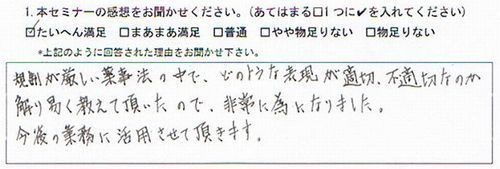 1. 本セミナーの感想をお聞かせください。（あてはまる□1つに✔を入れてください）
☑たいへん満足 □まあまあ満足 □普通 □やや物足りない □物足りない
*上記のように回答された理由をお聞かせ下さい。
規制が厳しい薬事法の中で、どのような表現が適切、不適切なのか
解り易く教えて頂いたので、非常に為になりました。
今後の業務に活用させて頂きます。